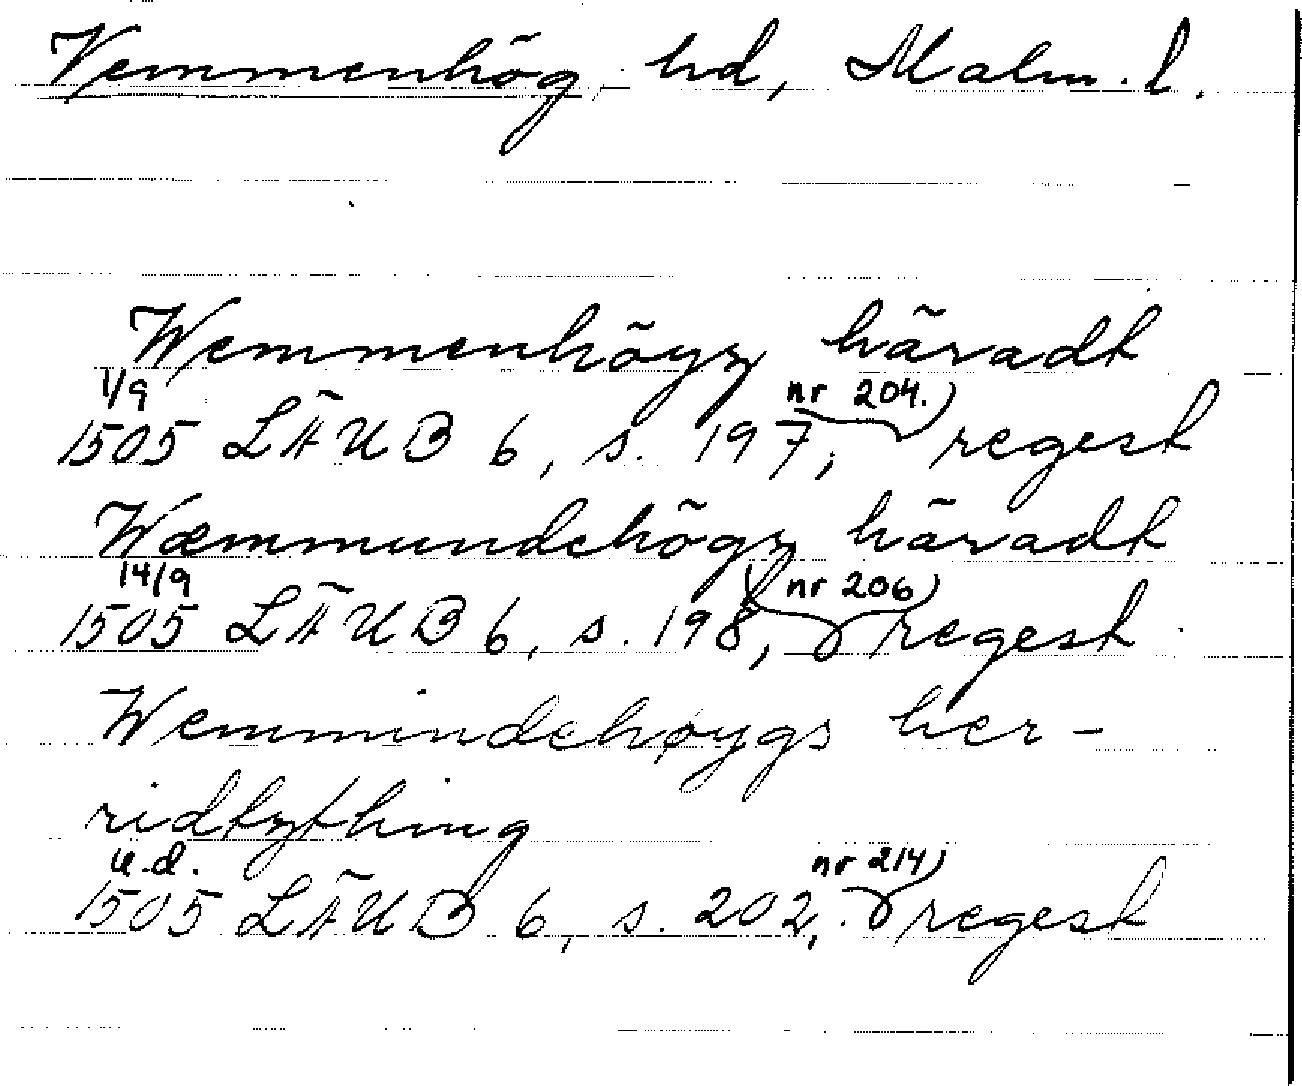 Vemmenhög, hd, Malm. l.
Wemmenhöygz häradt
1/9 nr 204.)
1505 LÄUB 6, s. 197, regest
Wæmmundehögz häradt
14/9 (nr 206)
1505 LÄUB 6, s. 198, regest
Wemmindehøygs her-
ridtzthing
u.d. nr 214)
1505 LÄUB 6, s. 202, regest